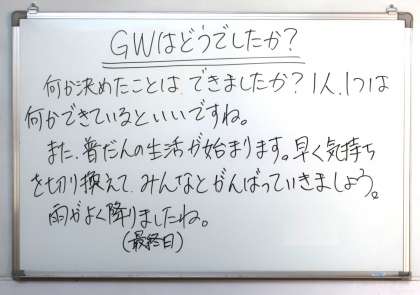 GWはどうでしたか?
何か決めたことは、できましたか?1人、1つは
何かできているといいですね。
また、普だんの生活が始まります。早く気持ち
を切り換えて、みんなとがんばっていきましょう。
雨がよく降りましたね。
(最終日)